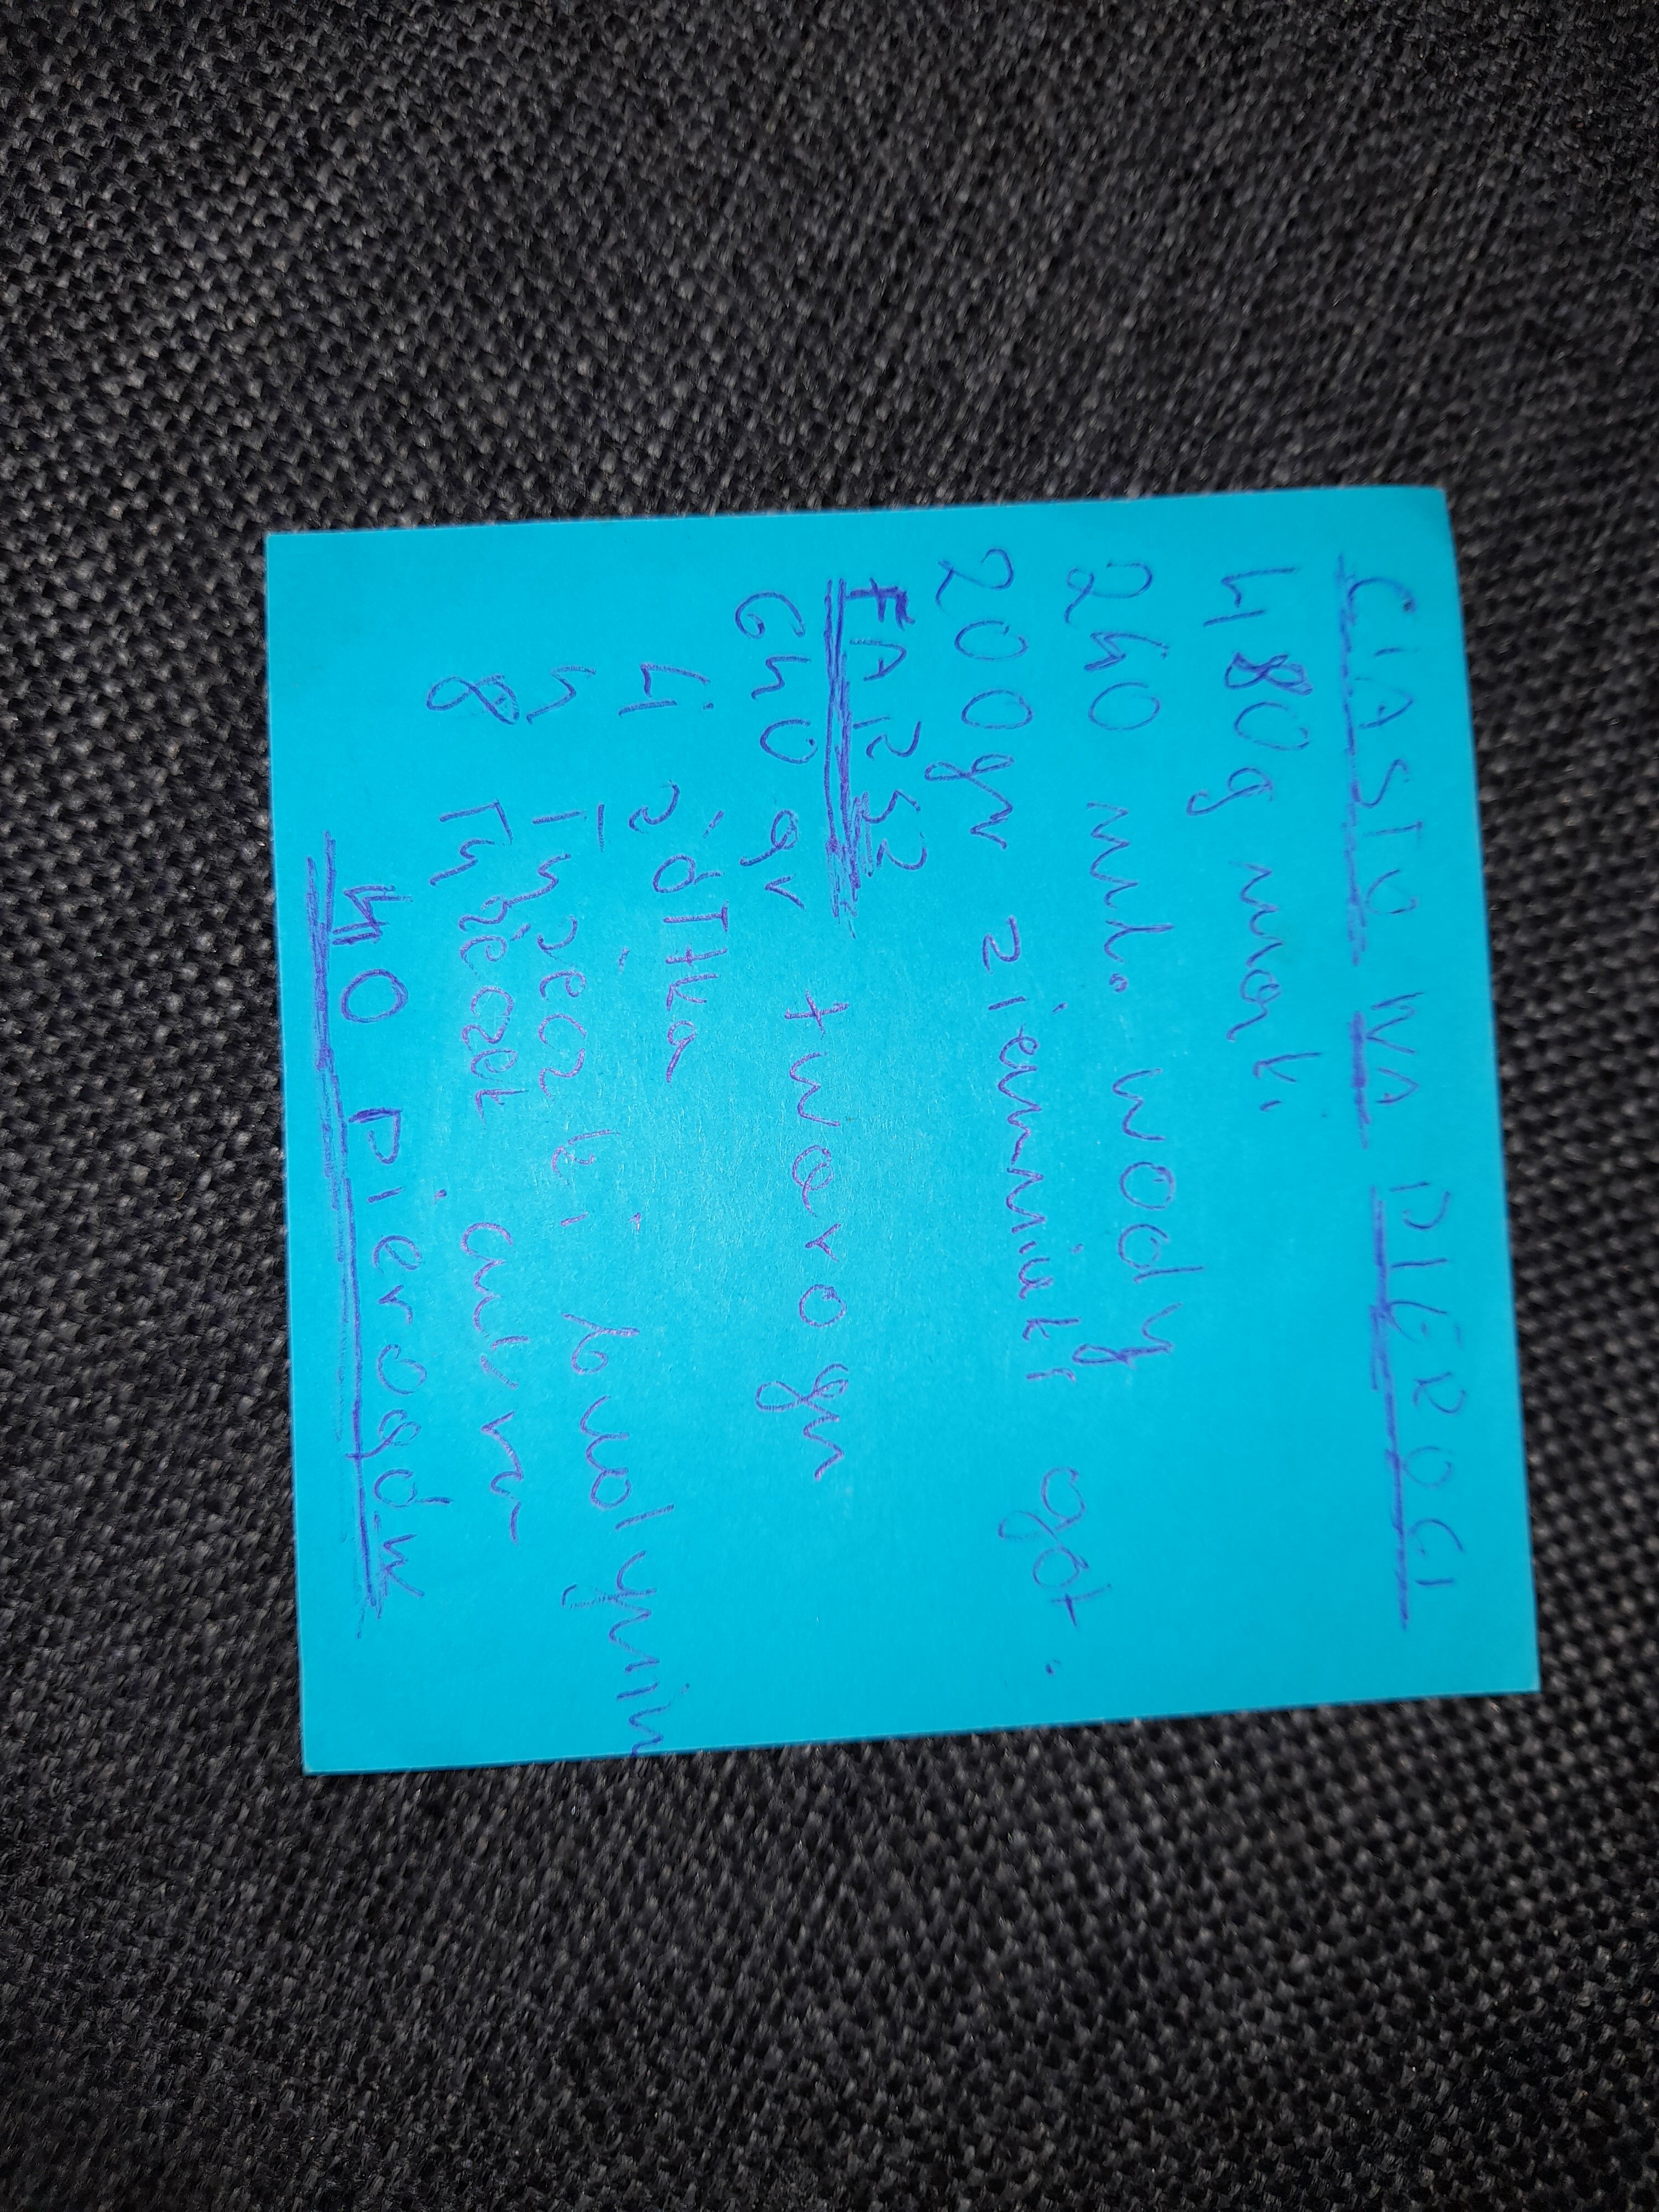 CIASTO NA PIEROGI
480g mąki
240 ml. wody
200gr ziemniaki got.
FARSZ
640 gr twarogu
4 żółtka
4 łyżeczki
8 łyżeczek cukru
40 pierogów